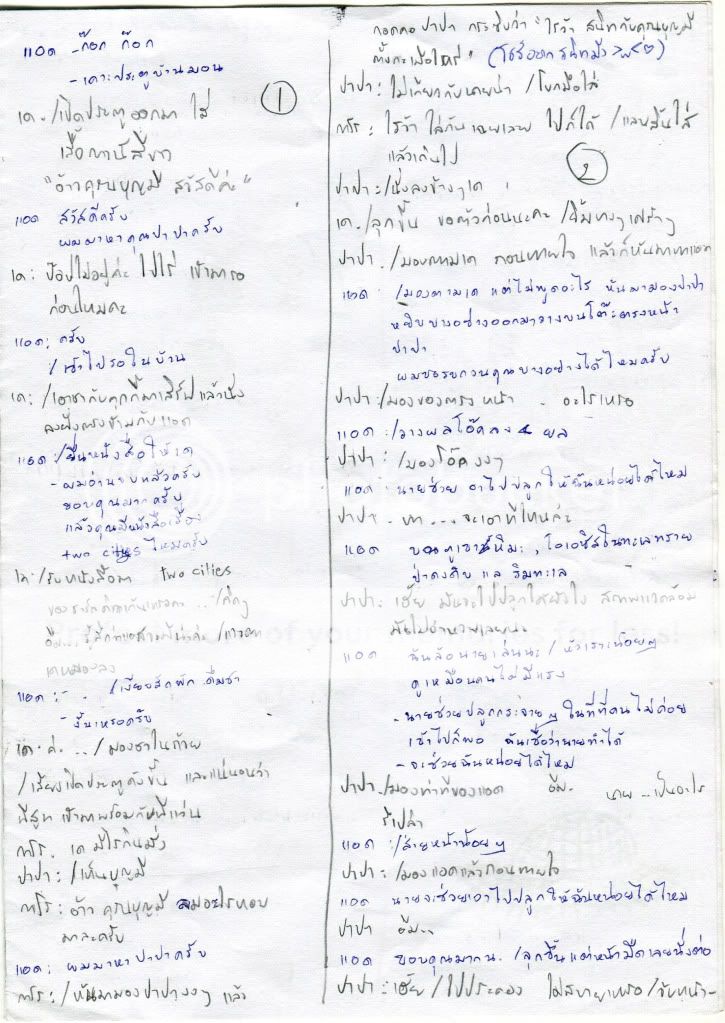 แอด -ก๊อก ก๊อก
- เคาะประตูบ้านมอน
①
เด./เปิดประตูออกมา ใส่
เสื้อ สีขาว
"อ้าวคุณบุญมี สวัสดีค่ะ"
แอด สวัสดีครับ
ผมมาหาคุณปาปาครับ
เด: ป๊อปไม่อยู่ค่ะ ไปไร่ เข้ามารอ
ก่อนไหมคะ
แอด: ครับ
/เข้าไปรอในบ้าน
เด: /เอาชากับคุกกี้มาเสิร์ฟแล้วนั่ง
ลงฝั่งตรงข้ามกับแอด
แอด: /ยื่นหนังสือให้เด
- ผมอ่านจบแล้วครับ
ขอบคุณมากครับ
แล้วคุณมีหนังสือเรื่อง
two cities ไหมครับ
เด: /รับหนังสือมา two cities
ของ /คิดๆ
อืม...
เดหมองลง
แอด: - .. /เงียบสักพัก ดื่มชา
- งั้นเหรอครับ
เด. ค่ะ .. /มองชาในถ้วย
/เสียงเปิดประตูดังขึ้น และแน่นอนว่า
เข้ามาพร้อมกับ
การ์ร. เด มีไรกินมั่ง
ปาปา: /เห็นบุญมี
การ์ร: อ้าว คุณบุญมี ลมอะไรหอบ
มาละครับ
แอด: ผมมาหาปาปาครับ
การ์ร: /หันมามองปาปางงๆ แล้ว
กอดคอปาปา กระซิบว่า "ไรว้า สนิทกับคุณบุญมี
ตั้งกะเมื่อไหร่"
ปาปา: ไม่เกี่ยวกับนายน่า /โบกมือไล่
การ์ร: ไรว้า ไล่กันเฉยเลย ไปก็ได้ /แลบลิ้นใส่
แล้วเดินไป
②
ปาปา: /นั่งลงข้างๆเด
เด. /ลุกขึ้น ขอตัวก่อนนะคะ /ยิ้มบางๆเศร้าๆ
ปาปา. /มองตามเด ถอนหายใจ แล้วก็หันมาหาแอด
แอด /มองตามเด แต่ไม่พูดอะไร หันมามองปาปา
หยิบบางอย่างออกมาวางบนโต๊ะตรงหน้า
ปาปา
ผมขอรบกวนคุณบางอย่างได้ไหมครับ
ปาปา: /มองของตรงหน้า . อะไรเหรอ
แอด: /วางผลโอ๊คลง 4 ผล
ปาปา: /มองโอ๊คงงๆ
แอด: นายช่วย เอาไปปลูกให้ฉันหน่อยได้ไหม
ปาปา. หา.... จะเอาที่ไหนล่ะ
แอด บนภูเขาหิมะ, โอเอซิสในทะเลทราย
ป่าดงดิบ แล ริมทะเล
ปาปา: เฮ้ย มันจะไปปลูกได้ยังไง สภาพแวดล้อม
มันไม่
แอด ฉันล้อนายเล่นน่ะ /หัวเราะน้อยๆ
ดูเหมือนคนไม่มีแรง
- นายช่วยปลูกกระจายๆ ในที่ที่คนไม่ค่อย
เข้าไปก็พอ ฉันเชื่อว่านายทำได้
- จะช่วยฉันหน่อยได้ไหม
ปาปา /มองท่าทีของแอด อืม. นาย...เป็นอะไร
รึเปล่า
แอด: /ส่ายหน้าน้อยๆ
ปาปา: /มองแอดแล้วถอนหายใจ
แอด นายจะช่วยเอาไปปลูกให้ฉันหน่อยได้ไหม
ปาปา อืม..
แอด ขอบคุณมากน. /ลุกขึ้นแต่หน้ามืดเลยนั่งต่อ
ปาปา: เฮ้ย /ไปประคอง ไม่สบายเหรอ /จับหน้า-